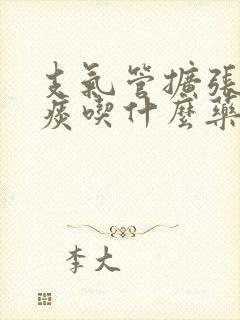 支氣管擴張
痰喫什麼藥
李大